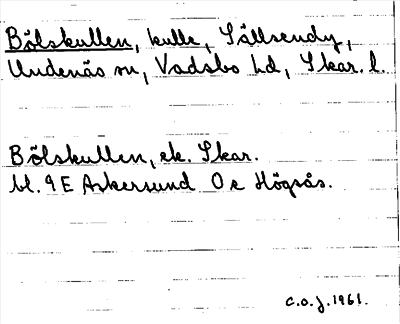 Bölskullen, kulle, Sällsendy,
Undenäs sn, Vadsbo hd, Skar. l.
Bölskullen, ek. Skar.
bl. 9E Askersund O e Högsås.
C.O.J. 1961.